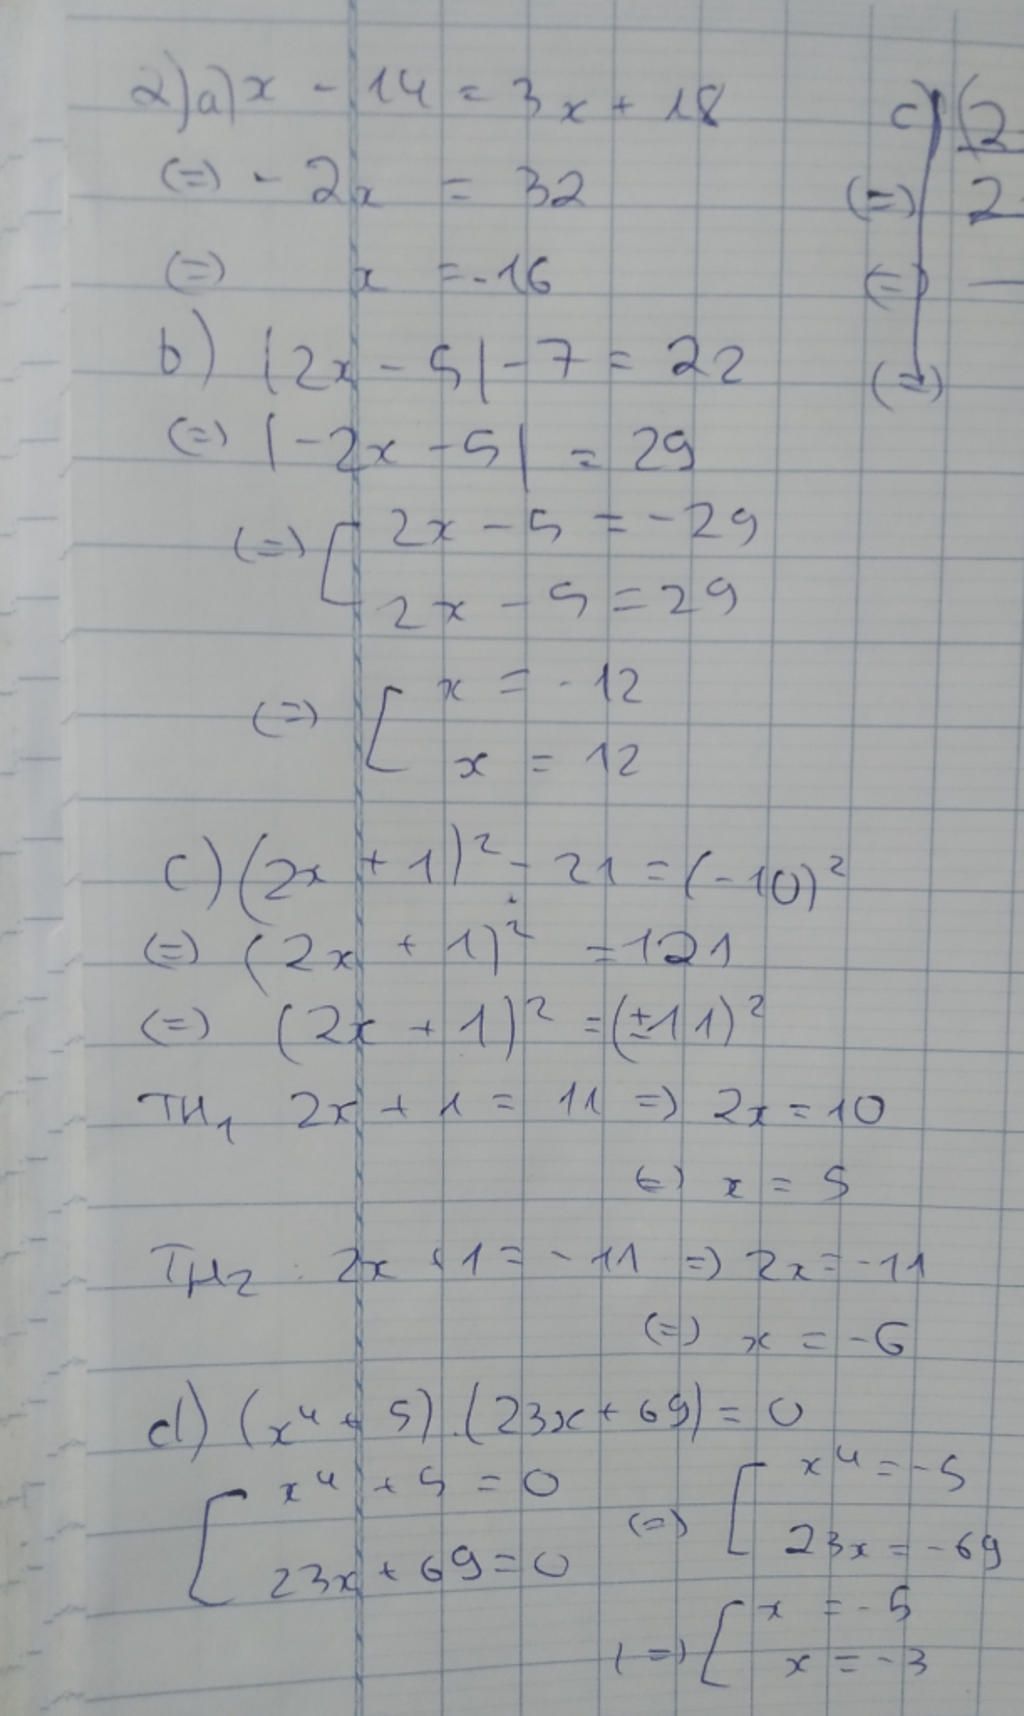 2) a) x - 14 = 3x + 18
(=) - 2x = 32
(=) x = -16
b) |2x - 5| - 7 = 22
(=) |-2x - 5| = 29
(=) [ 2x - 5 = -29
2x - 5 = 29
(=) [ x = -12
x = 12
c) (2x + 1)² - 21 = (-10)²
(=) (2x + 1)² = 121
(=) (2x + 1)² = (±11)²
TH₁ 2x + 1 = 11 =) 2x = 10
(=) x = 5
TH₂ : 2x + 1 = -11 =) 2x = -11
(=) x = -6
d) (x⁴ + 5) . (23x + 69) = 0
[ x⁴ + 5 = 0
23x + 69 = 0
(=) [ x⁴ = -5
23x = -69
(=) [ x = -5
x = -3
c) (2
(=) 2
(=) —
(=)